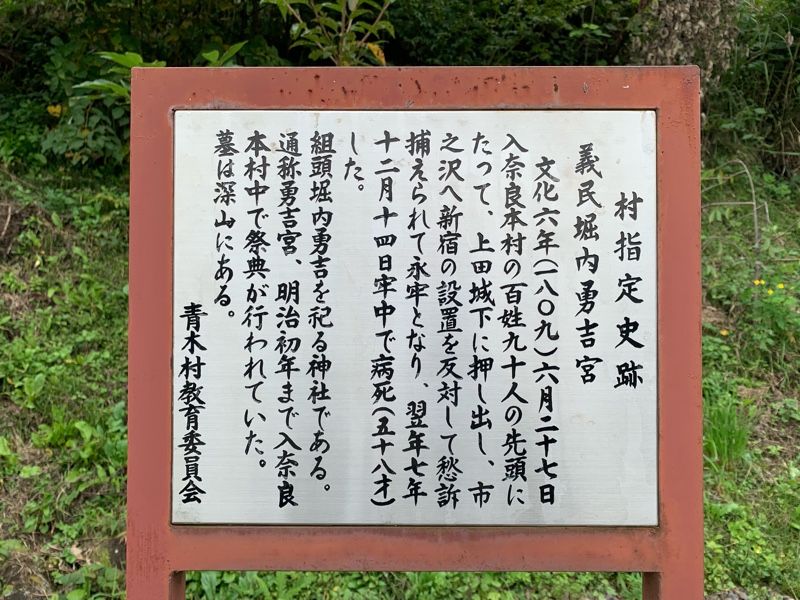 村指定史跡
義民堀内勇吉宮
文化六年(一八〇九)六月二十七日
入奈良本村の百姓九十人の先頭に
たって、上田城下に押し出し、市
之沢へ新宿の設置を反対して愁訴
捕えられて永牢となり、翌年七年
十二月十四日牢中で病死(五十八才)
した。
組頭堀内勇吉を祀る神社である。
通称勇吉宮、明治初年まで入奈良
本村中で祭典が行われていた。
墓は深山にある。
青木村教育委員会